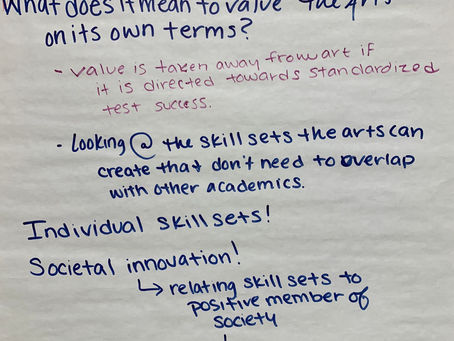 What does it mean to value the Arts
on its own terms?
- value is taken away from art if
it is directed towards standardized
test success.
- Looking @ the skill sets the arts can
create that don't need to overlap
with other academics.
Individual skill sets!
Societal innovation!
↳ relating skill sets to
positive member of
society